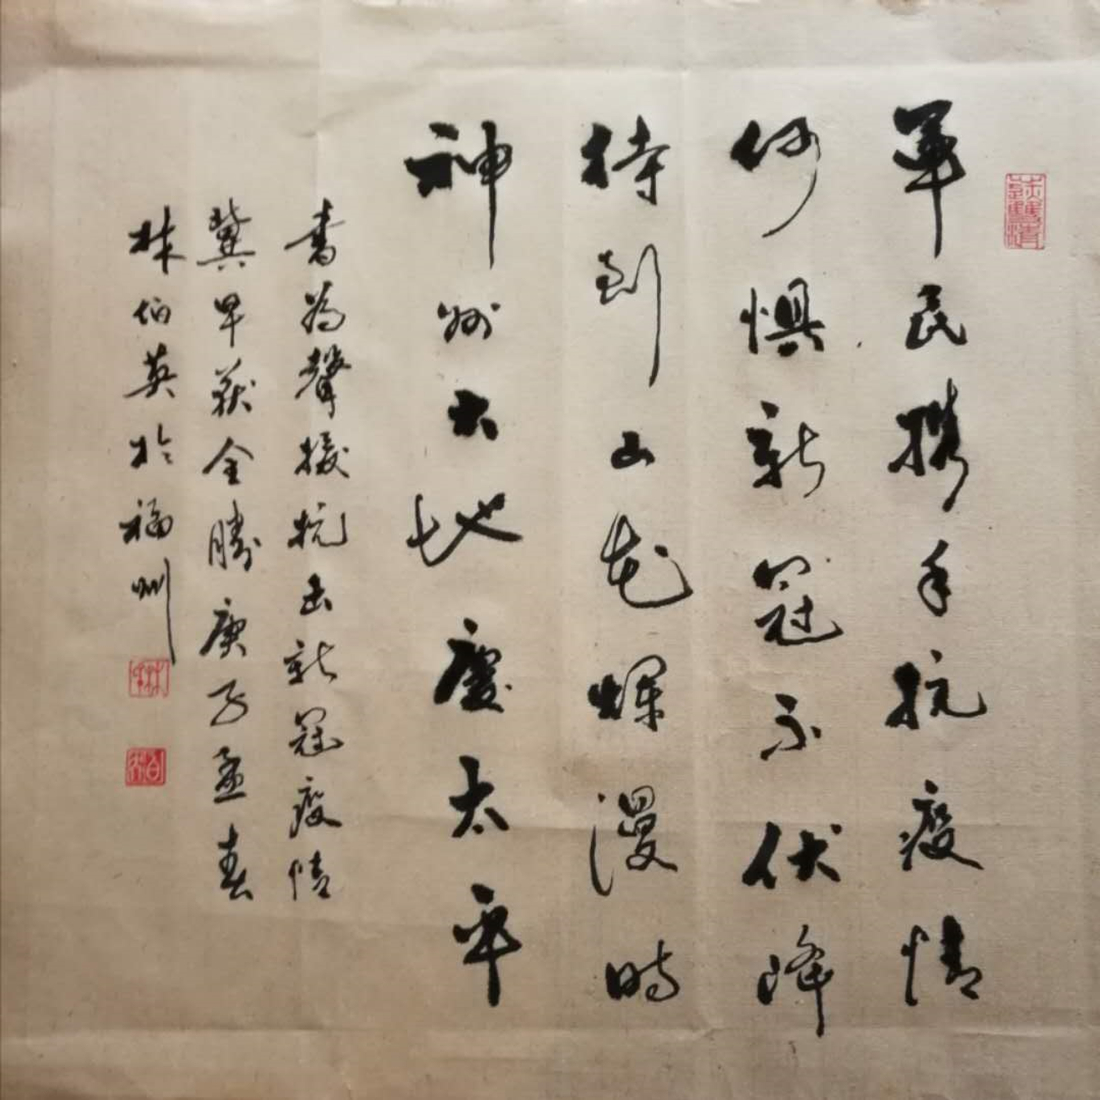 軍民携手抗疫情
何惧新冠不伏降
待到山花烂漫時
神州大地慶太平
書為聲援抗击新冠疫情
冀早获全勝庚子孟春
林伯英於福州